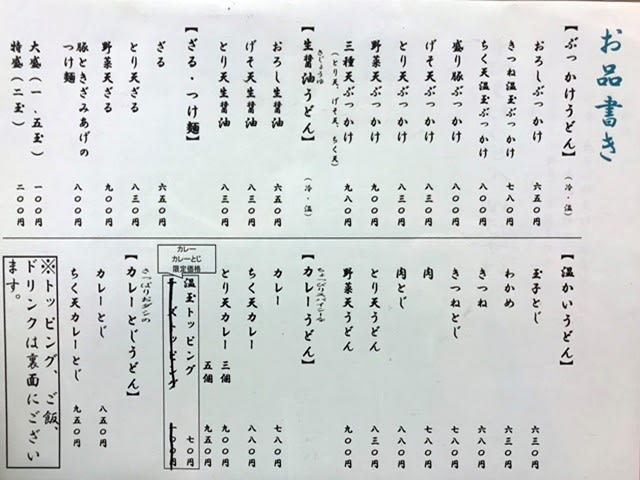 お品書き
【ぶっかけうどん】（冷・温）
おろしぶっかけ 六五〇円
きつね温玉ぶっかけ 七八〇円
ちく天温玉ぶっかけ 八〇〇円
盛り豚ぶっかけ 八〇〇円
げそ天ぶっかけ 八三〇円
とり天ぶっかけ 八三〇円
野菜天ぶっかけ 九〇〇円
三種天ぶっかけ 九八〇円
（とり天、げそ天、ちく天）
きじょうゆ
【生醤油うどん】（冷・温）
おろし生醤油 六五〇円
げそ天生醤油 八三〇円
とり天生醤油 八三〇円
【ざる・つけ麺】
ざる 六五〇円
とり天ざる 八三〇円
野菜天ざる 九〇〇円
豚ときざみあげの
つけ麺 八〇〇円
大盛（一．五玉） 一〇〇円
特盛（二玉） 二〇〇円
【温かいうどん】
玉子とじ 六三〇円
わかめ 六三〇円
きつね 六八〇円
きつねとじ 七八〇円
肉 七八〇円
肉とじ 八八〇円
とり天うどん 八三〇円
野菜天うどん 九〇〇円
ちょっぴりスパイシーな
【カレーうどん】
カレー 七八〇円
ちく天カレー 八八〇円
とり天カレー 三個 九〇〇円
五個 九五〇円
カレー
カレーとじ
限定価格
温玉トッピング 七〇円
さっぱりおダシの
【カレーとじうどん】
カレーとじ 八五〇円
ちく天カレーとじ 九五〇円
※トッピング、ご飯、
ドリンクは裏面にござい
ます。